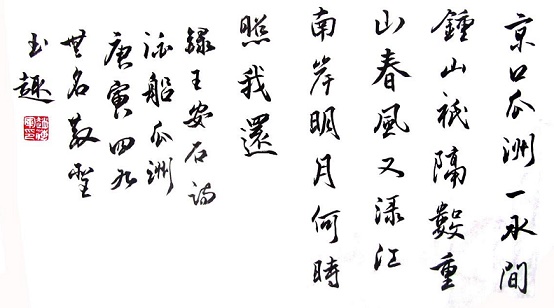 京口瓜洲一水間
鍾山祇隔數重
山春風又渌江
南岸明月何時
照我還
錄王安石詩
泊船瓜洲
庚寅四九
名散
趣